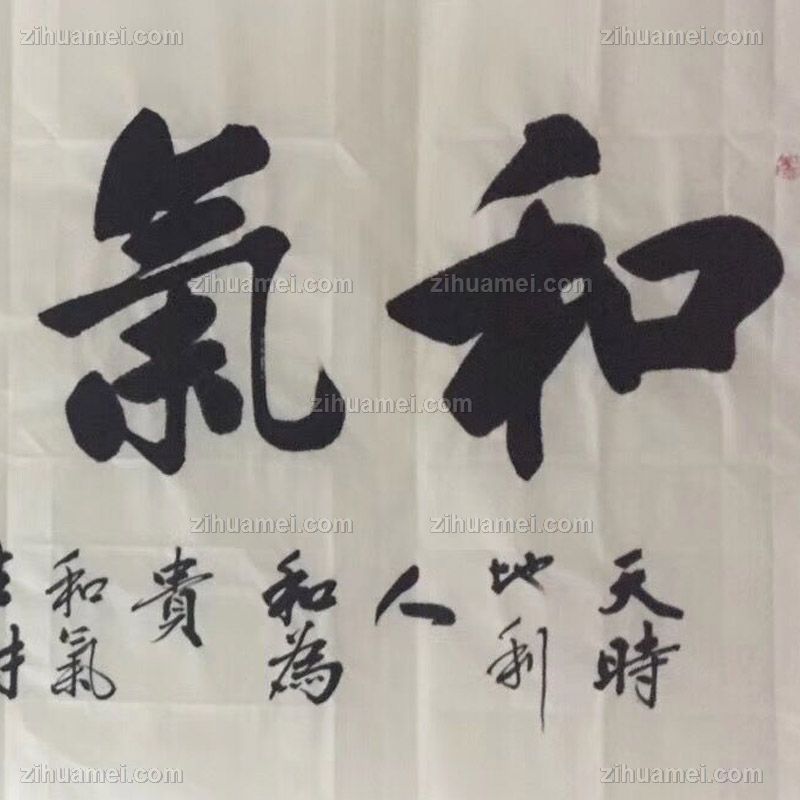 和氣
天時
地利
人
和為
貴
和氣
zihuamei.com
zihuamei.com
zihuamei.com
zihuamei.com
zihuamei.com
zihuamei.com
zihuamei.com
zihuamei.com
zihuamei.com
zihuamei.com